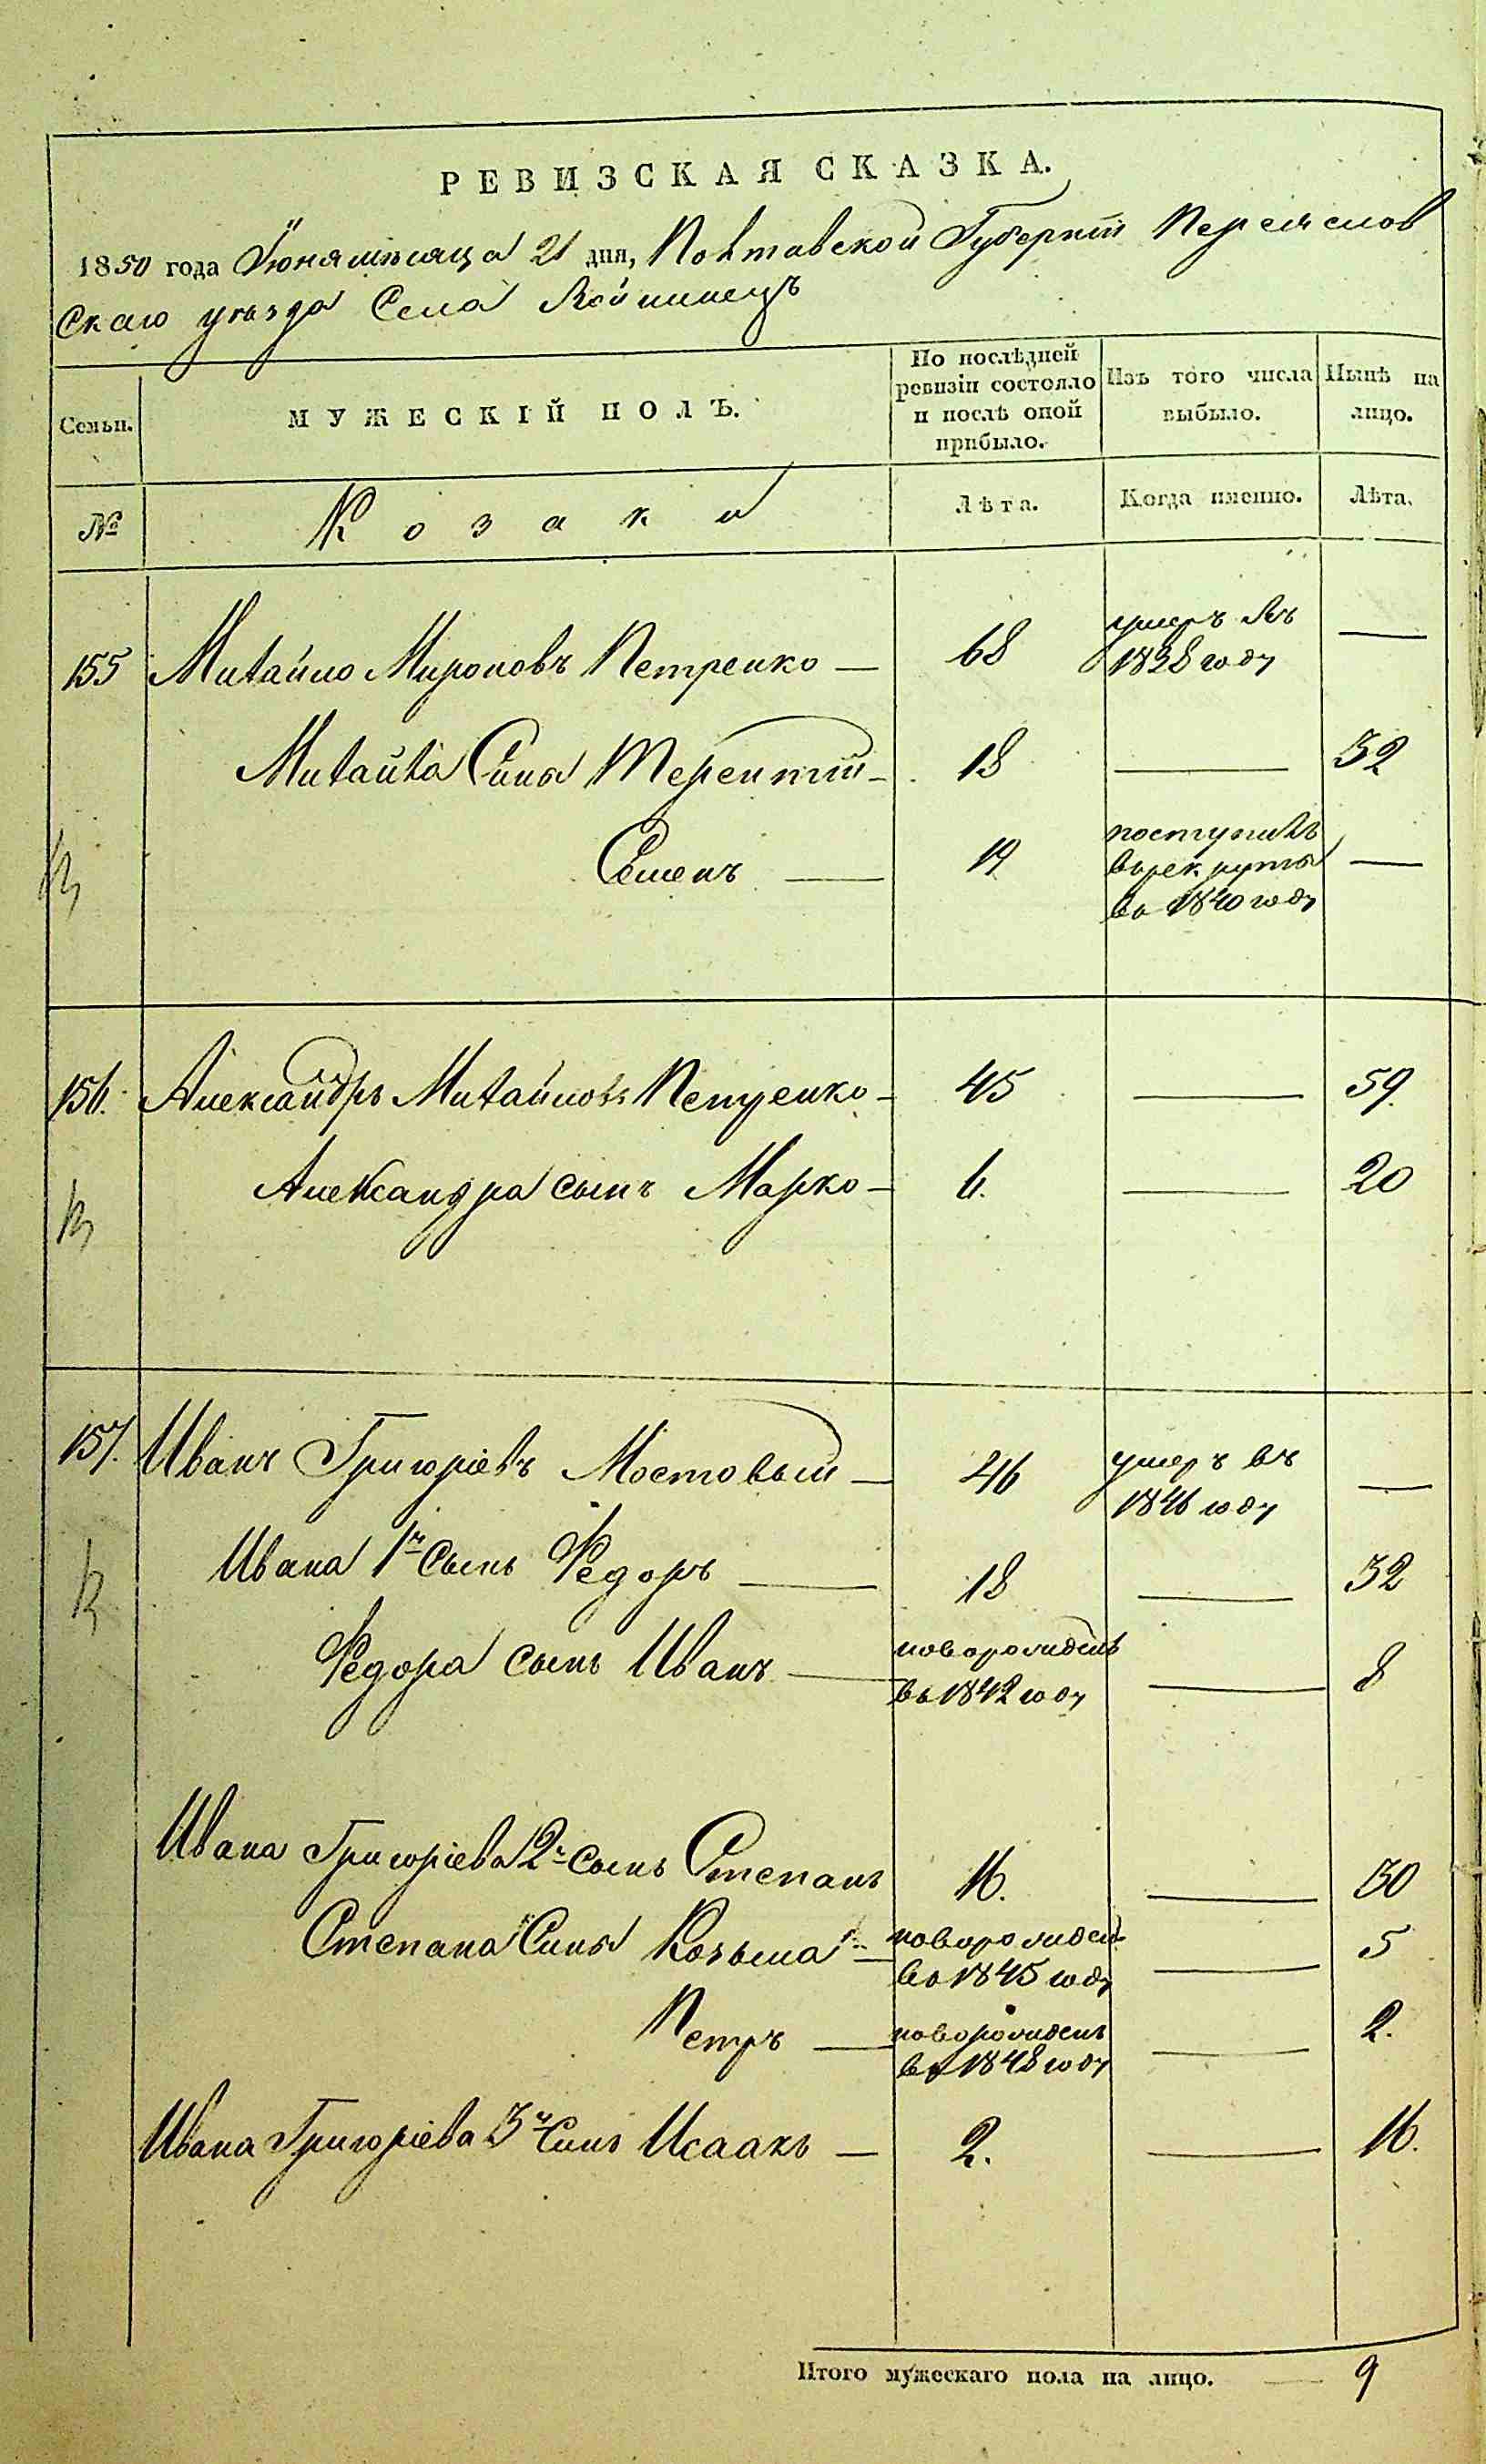 РЕВИЗСКАЯ СКАЗКА.
1850 года Іюня мѣсяца 21 дня, Полтавской Губерніи Переяслов
скаго уѣзда Села Войнинецъ
Семьи.
МУЖЕСКІЙ ПОЛЪ.
По послѣдней ревизіи состояло и послѣ оной прибыло.
Изъ того числа выбыло.
Нынѣ на лицо.
№
Козаки
Лѣта.
Когда именно.
Лѣта.
155 Михайло Мироновъ Петренко — 68 умеръ въ 1838 году —
Михайла Сины Терентій — 18 — 32
Семенъ — 19 поступилъ въ рекруты въ 1840 году —
156. Александръ Михайловъ Петренко — 45 — 59.
Александра сынъ Марко — 6. — 20
157. Иванъ Григоріевъ Мостовый — 46 умеръ въ 1846 году —
Ивана 1й Сынъ Федоръ — 18 — 32
Федора сынъ Иванъ — новорожденъ въ 1842 году — 8
Ивана Григоріева 2й сынъ Степанъ 16. — 30
Степана Сины Козьма — новорожден въ 1845 году — 5
Петръ — новорожденъ въ 1848 году — 2.
Ивана Григоріева 3й Синъ Исаакъ — 2. — 16.
Итого мужескаго пола на лицо. — 9